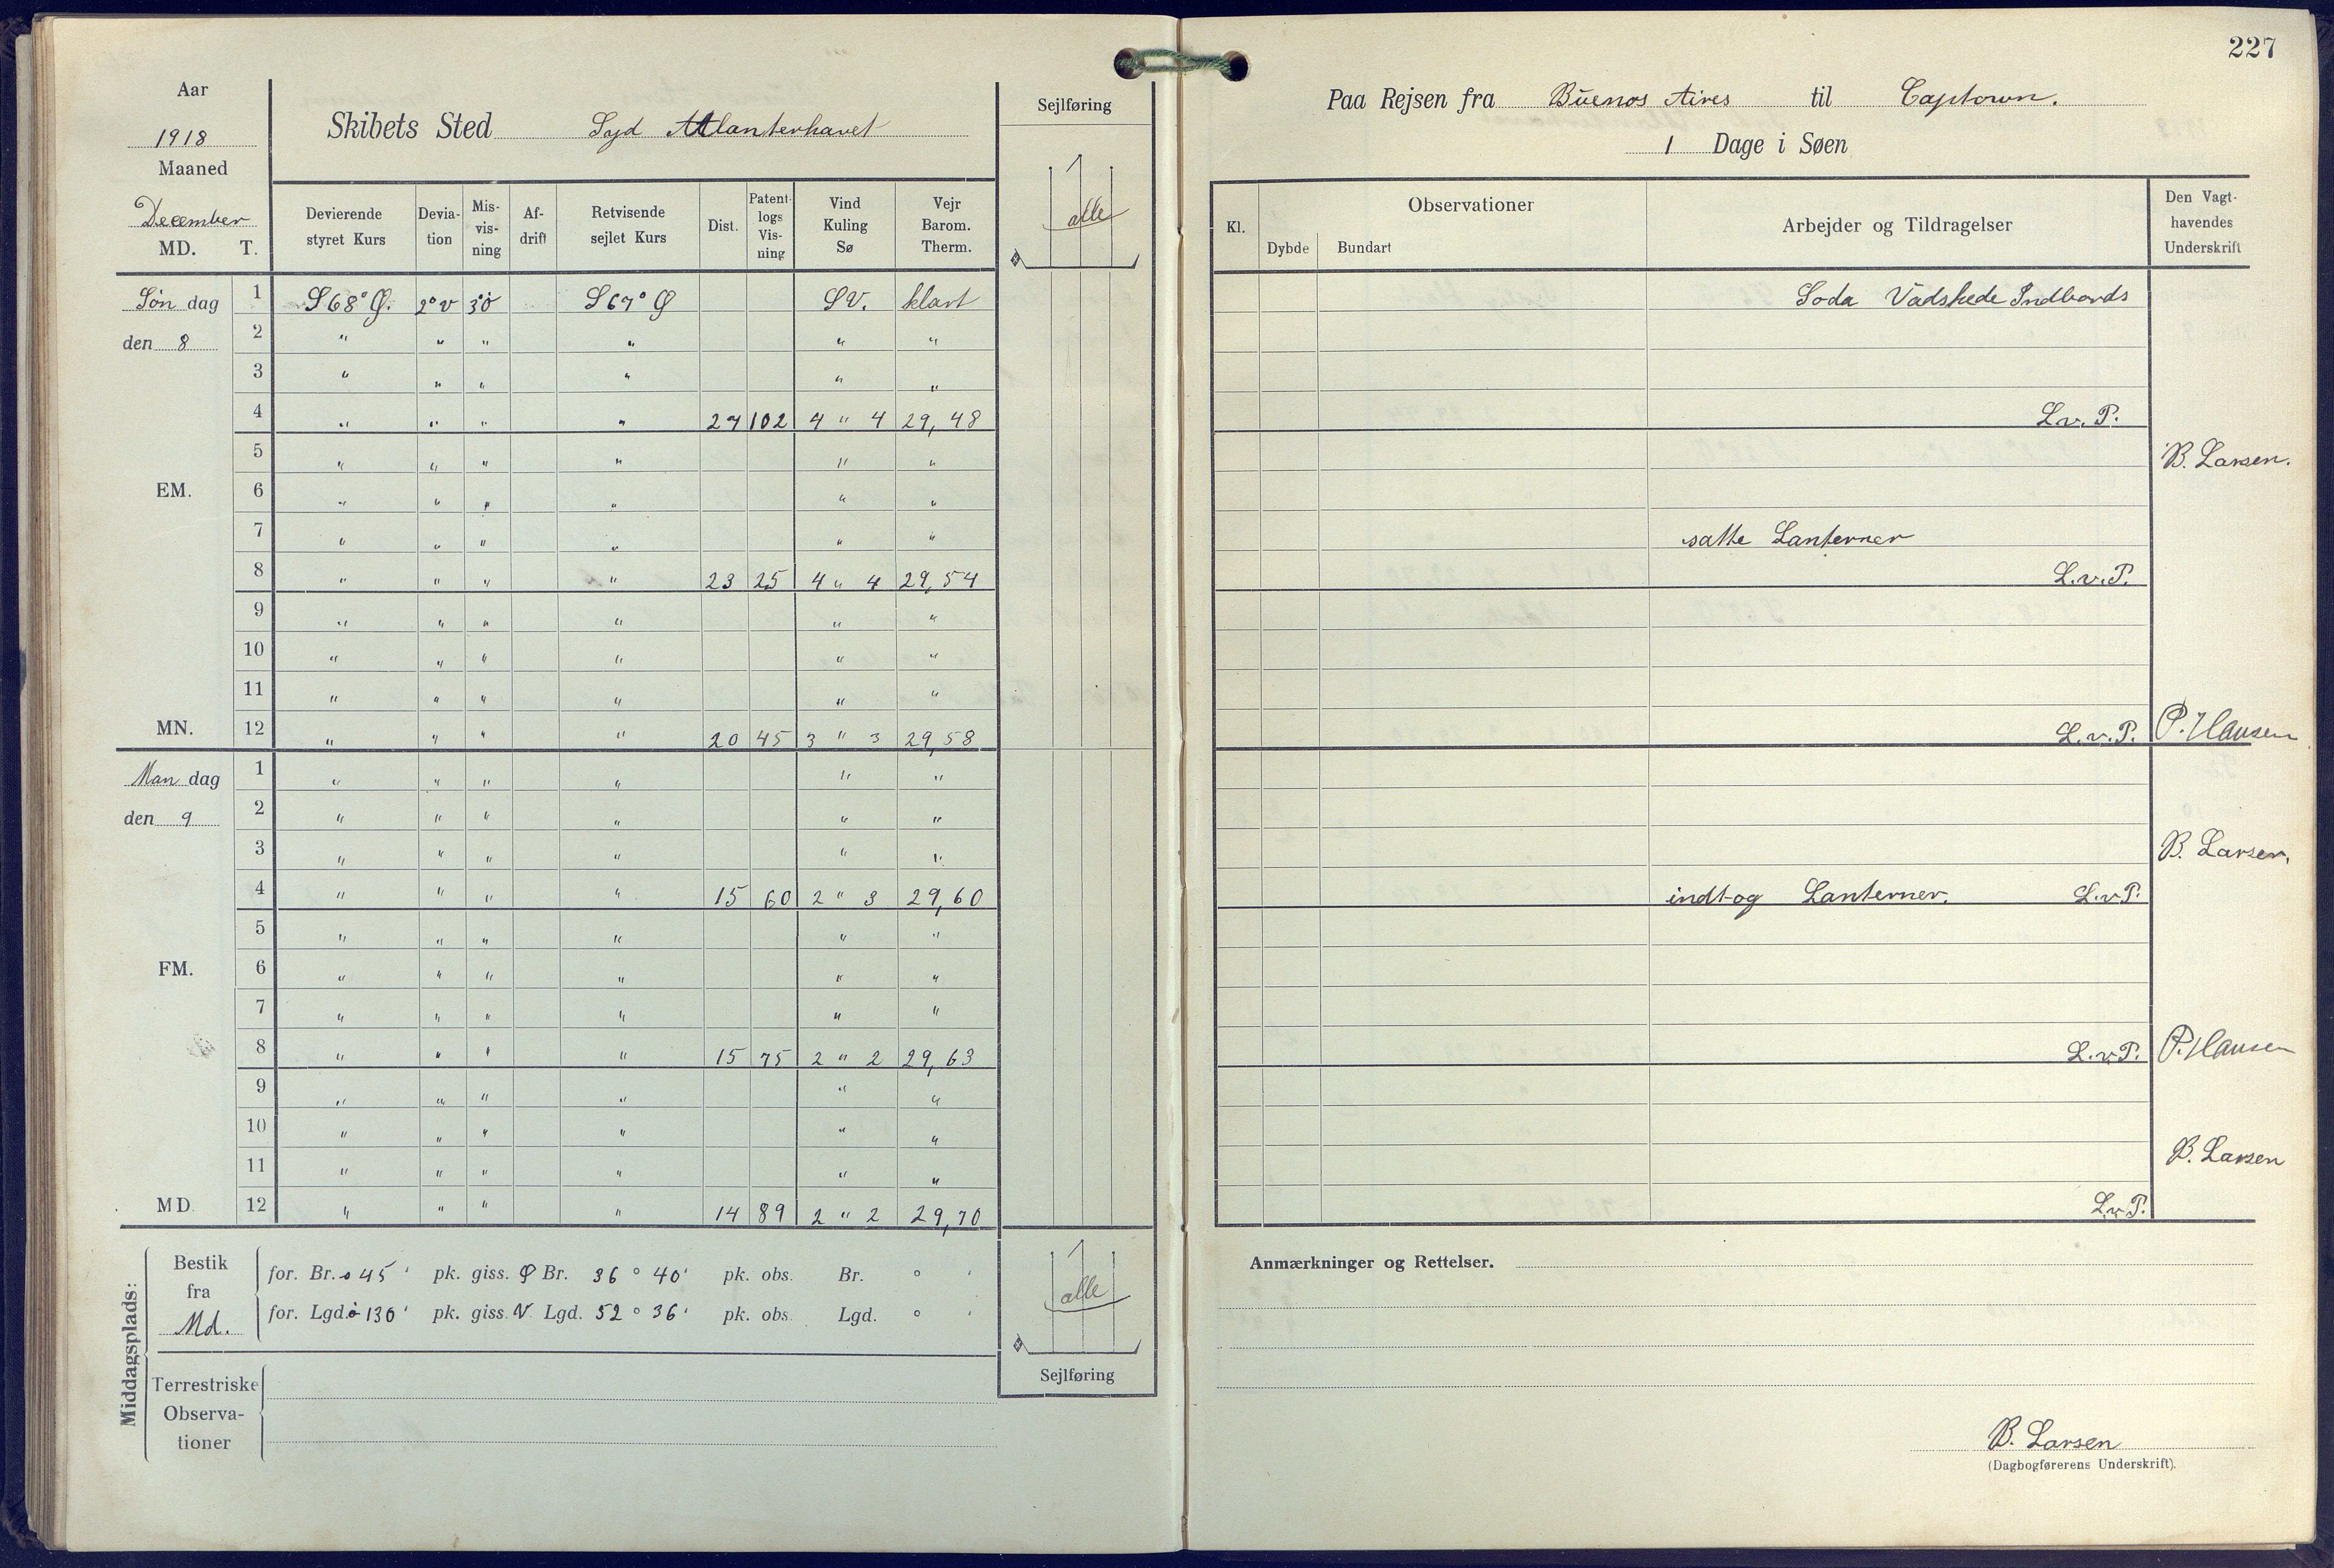 227
Aar
1918
Maaned
December
MD. T.
Skibets Sted Syd Atlanterhavet
Sejlføring
alle
Devierende styret Kurs
Devia-tion
Mis-vis-ning
Af-drift
Retvisende sejlet Kurs
Dist.
Patent-logs Vis-ning
Vind Kuling Sø
Vejr Barom. Therm.
Søndag 1 S 68° Ø. 2° V 3° S 67° Ø SV. klart
den 8 2 " " " " " "
3 " " " " " "
4 " " " " 27 102 4 " 4 29,48
5 " " " " " "
EM. 6 " " " " " "
7 " " " " " "
8 " " " " 23 25 4 " 4 29,54
9 " " " " " "
10 " " " " " "
11 " " " " " "
MN. 12 " " " " 20 45 3 " 3 29,58
Mandag 1 " " " " " "
den 9 2 " " " " " "
3 " " " " " "
4 " " " " 15 60 2 " 3 29,60
5 " " " " " "
FM. 6 " " " " " "
7 " " " " " "
8 " " " " 15 75 2 " 2 29,63
9 " " " " " "
10 " " " " " "
11 " " " " " "
MD. 12 " " " " 14 89 2 " 2 29,70
Middagsplads:
Bestik fra Md.
for. Br. 45' pk. giss. S Br. 36° 40' pk. obs. Br. ° '
for. Lgd. 130' pk. giss. V Lgd. 52° 36' pk. obs. Lgd. ° '
Terrestriske Observa-tioner
alle
Sejlføring
Paa Rejsen fra Buenos Aires til Captown.
1 Dage i Søen
Kl.
Observationer
Dybde
Bundart
Arbejder og Tildragelser
Den Vagt-havendes Underskrift
Soda Vadskede Indbords
L.v.P.
B. Larsen.
satte Lanterner
L.v.P.
L.v.P. P. Hansen
B. Larsen.
indtog Lanterner. L.v.P.
L.v.P. P. Hansen
B. Larsen
L.v.P.
Anmærkninger og Rettelser.
B. Larsen
(Dagbogførerens Underskrift).